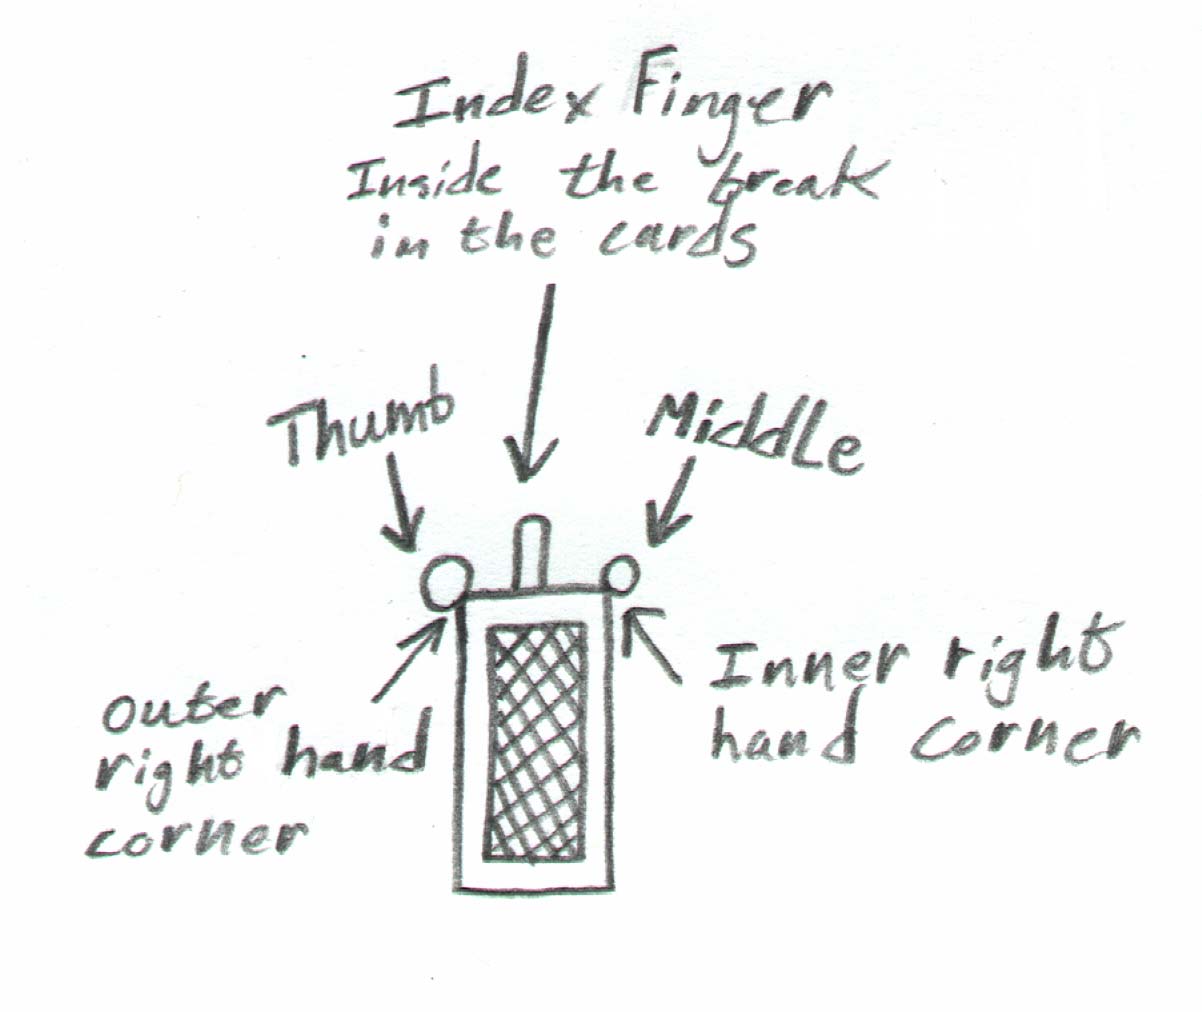 Index Finger
Inside the break
in the cards
Thumb
Middle
outer
right hand
corner
Inner right
hand corner